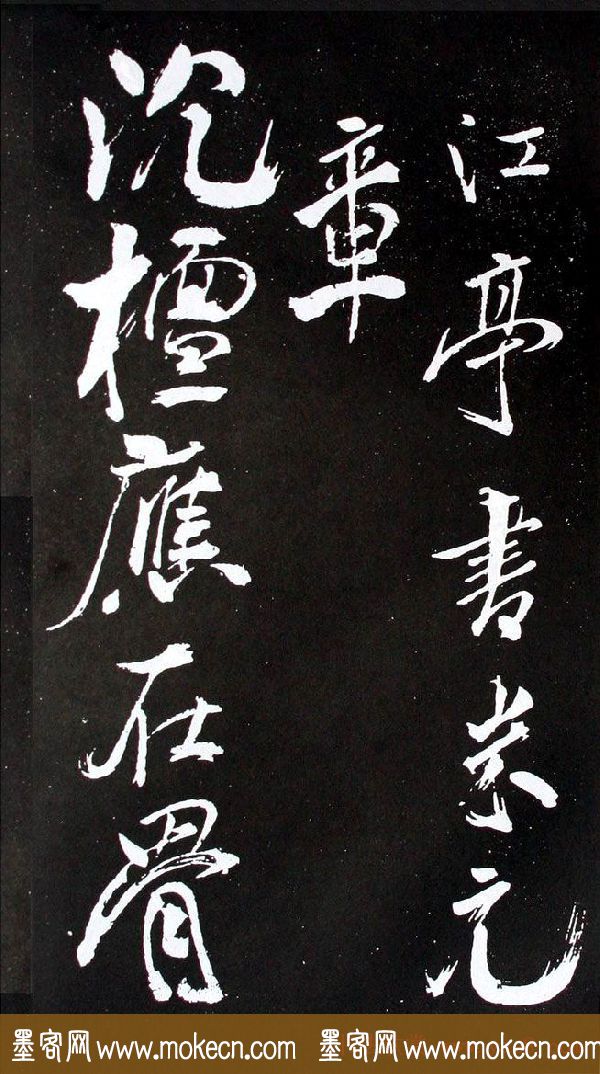 江亭書米元
章
沉檀應在骨
墨客网 www.mokecn.com 墨客网 www.mokecn.com